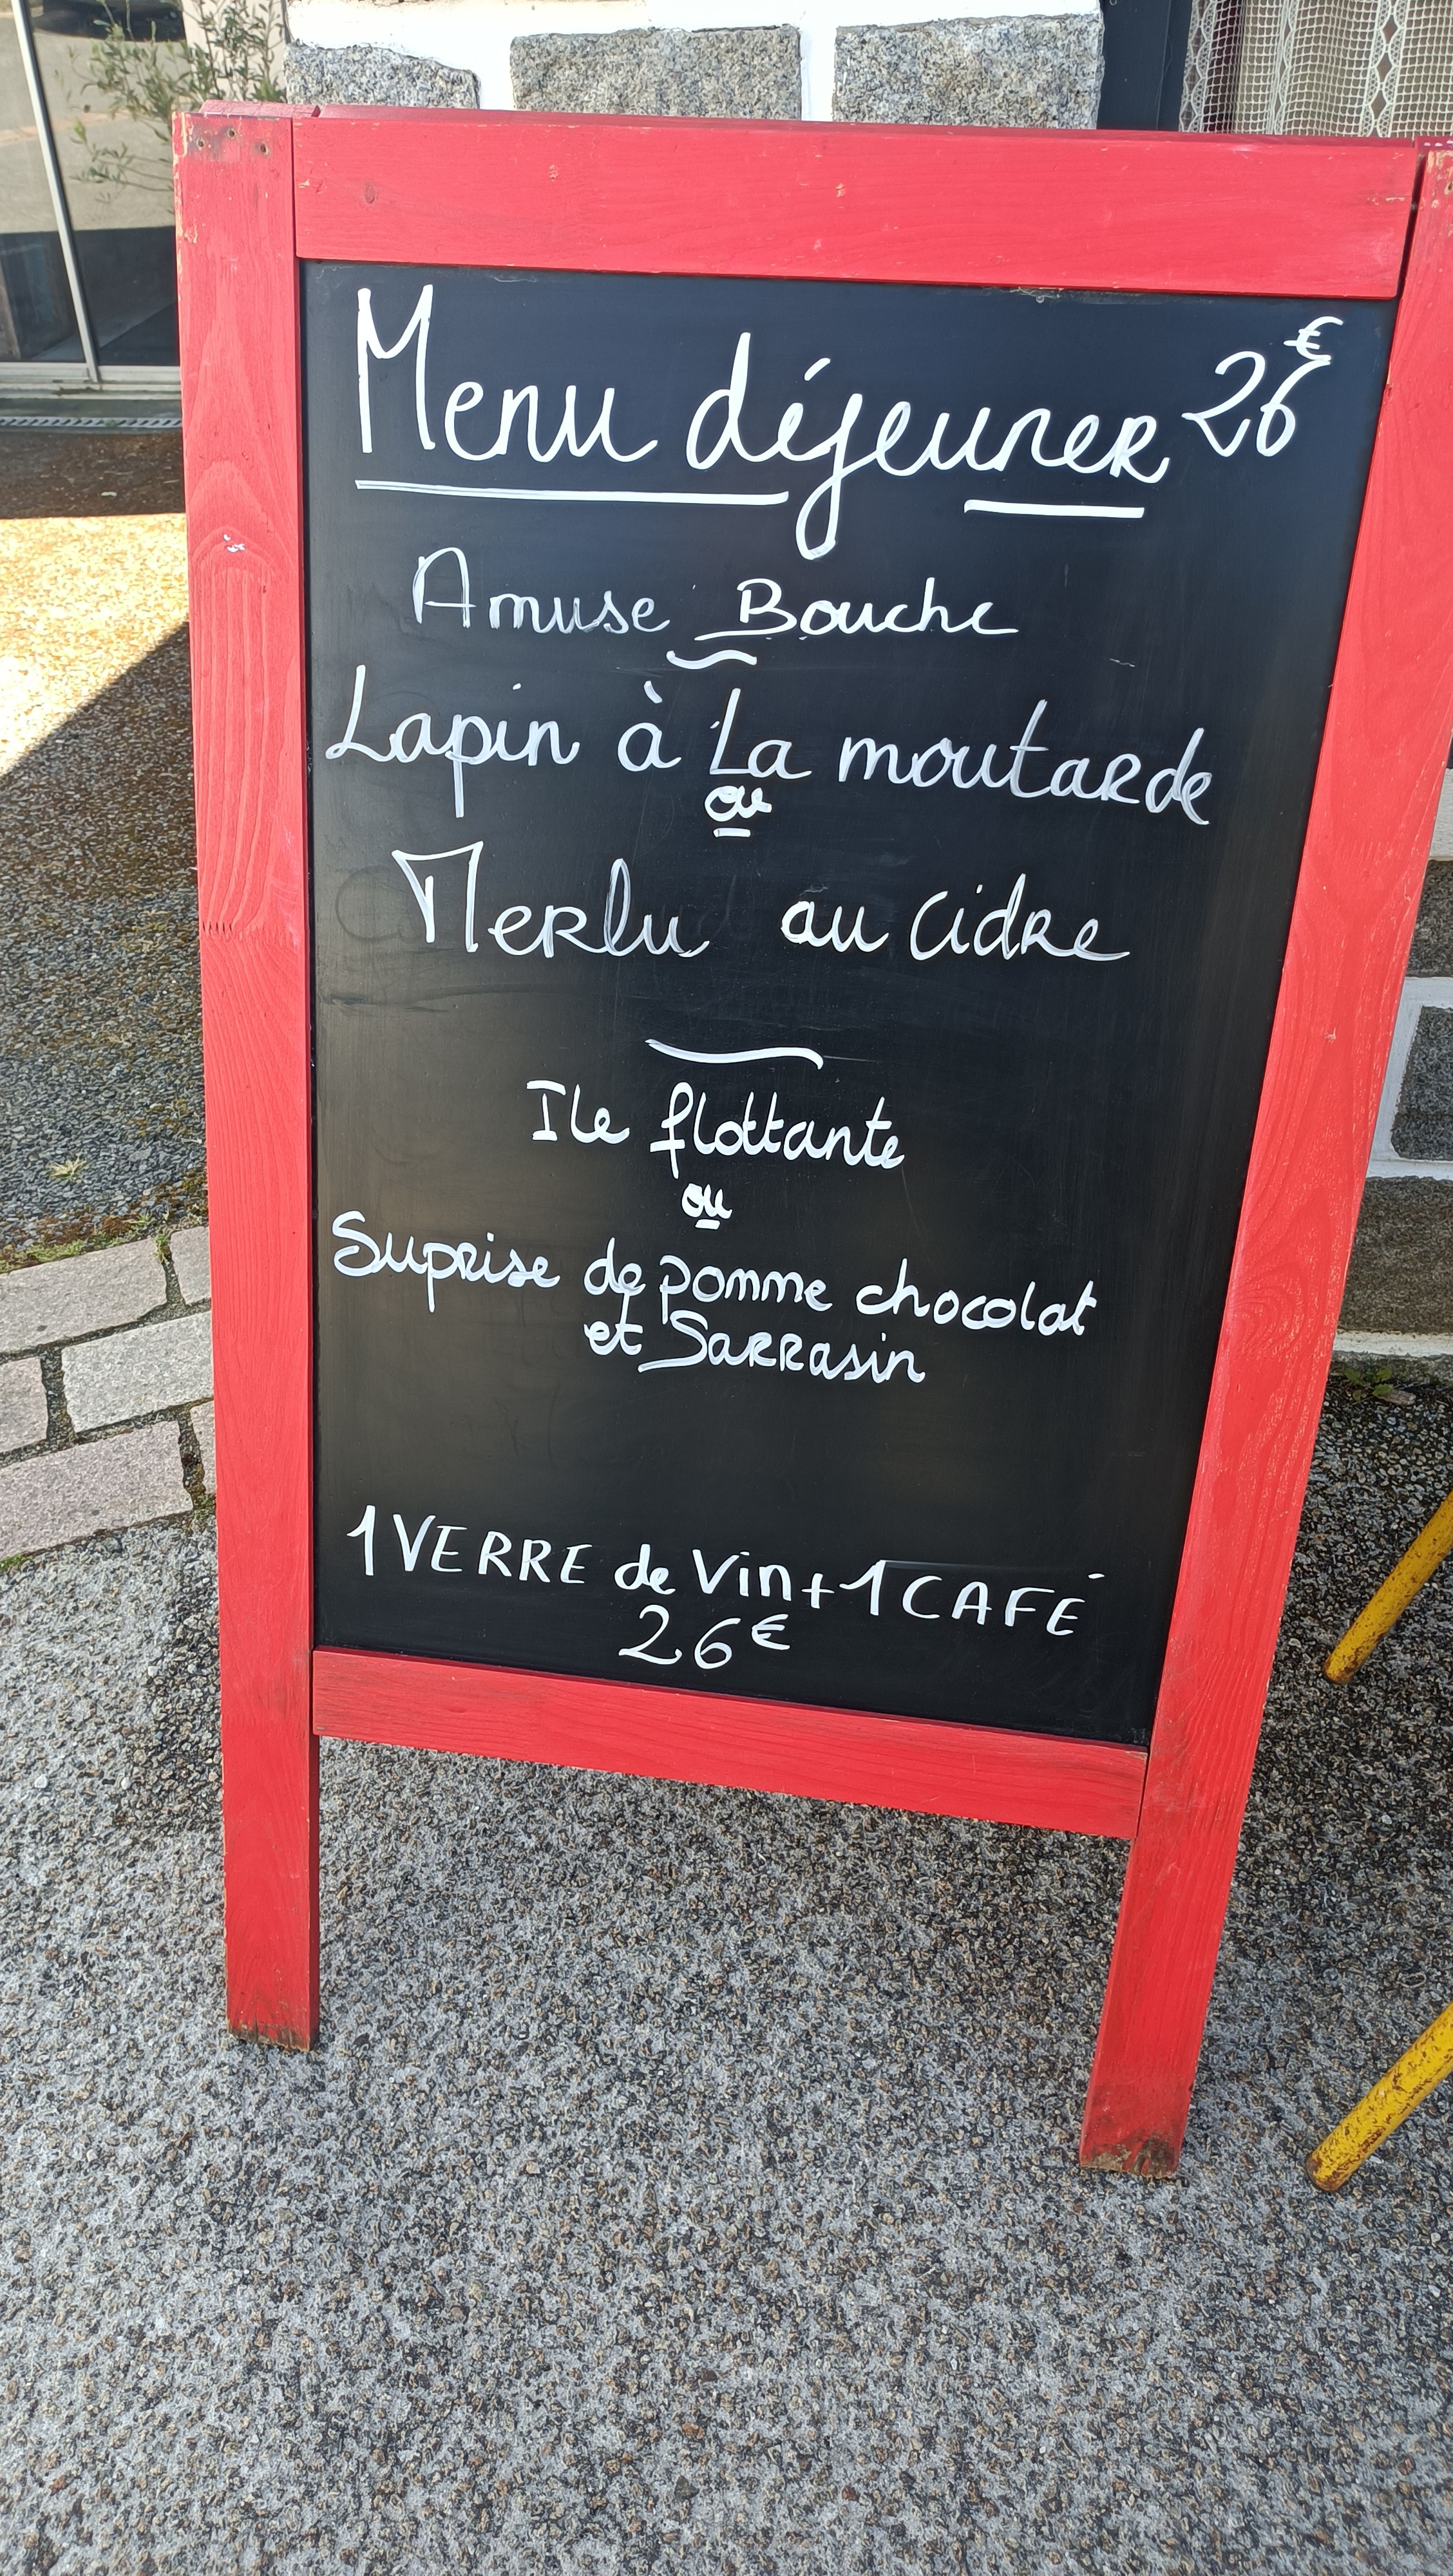 Menu déjeuner 26€
Amuse Bouche
Lapin à La moutarde
ou
Merlu au cidre
Ile flottante
ou
Suprise de pomme chocolat
et Sarrasin
1 VERRE de Vin + 1 CAFÉ
26€